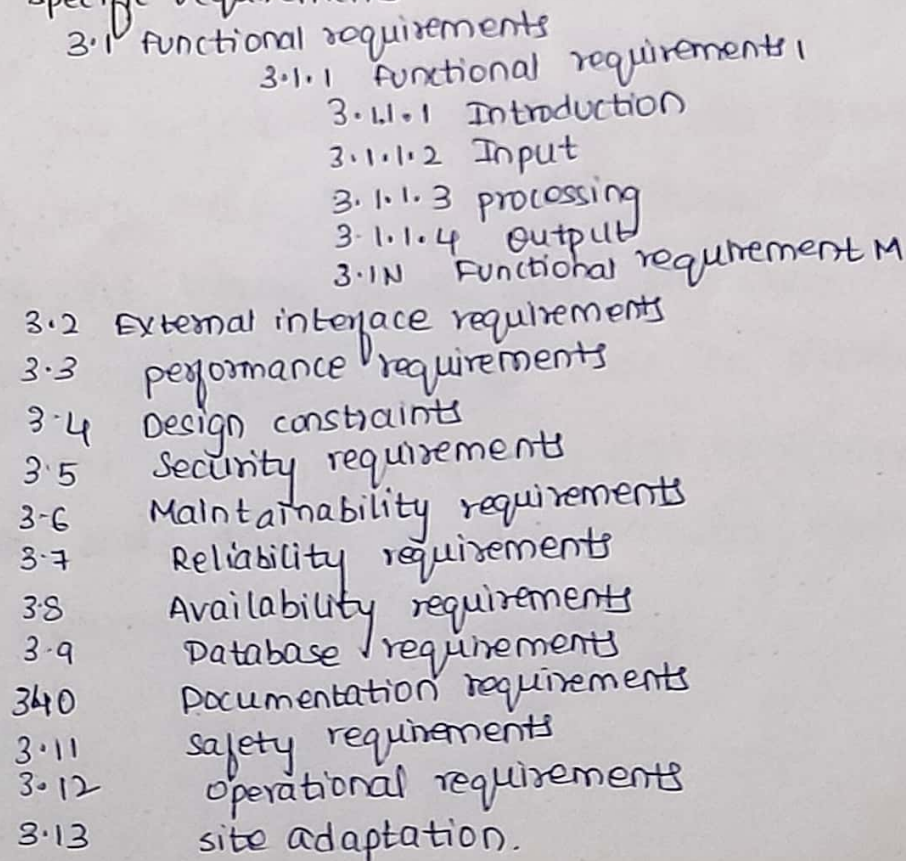 Specific requirements
3.1 functional requirements
3.1.1 functional requirements 1
3.1.1.1 Introduction
3.1.1.2 Input
3.1.1.3 processing
3.1.1.4 output
3.1N Functional requirement M
3.2 External interface requirements
3.3 performance requirements
3.4 Design constraints
3.5 Security requirements
3-6 Maintainability requirements
3.7 Reliability requirements
3.8 Availability requirements
3.9 Database requirements
3.10 Documentation requirements
3.11 safety requirements
3.12 operational requirements
3.13 site adaptation.